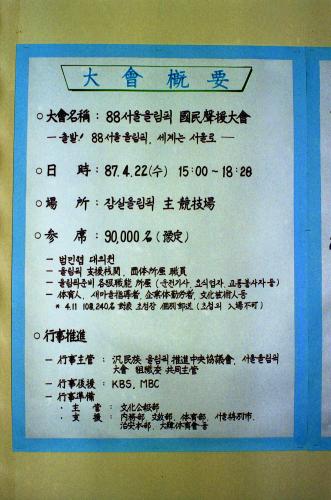 大會槪要
○大會名稱 : 88서울올림픽 國民聲援大會
— 출발! 88서울올림픽, 세계는 서울로 —
○日 時 : 87.4.22(수) 15:00~18:28
○場 所 : 잠실올림픽 主競技場
○參 席 : 90,000名 (豫定)
- 범민협 대의원
- 올림픽 支援機関, 団体所屬 職員
- 올림픽준비 各級職能 所屬 (운전기사, 요식업자, 교통봉사자 등)
- 体育人, 새마을指導者, 企業体勤労者, 文化芸術人 등
* 4.11 108,240名 対象 초청장 個別郵送 (초청외 入場不可)
○行事推進
- 行事主管 : 汎民族 올림픽 推進中央協議會, 서울올림픽
大會 組織委 共同主管
- 行事後援 : KBS, MBC
- 行事準備
· 主 管 : 文化公報部
· 支 援 : 内務部, 文敎部, 体育部, 서울特別市,
治安本部, 大韓体育會 등